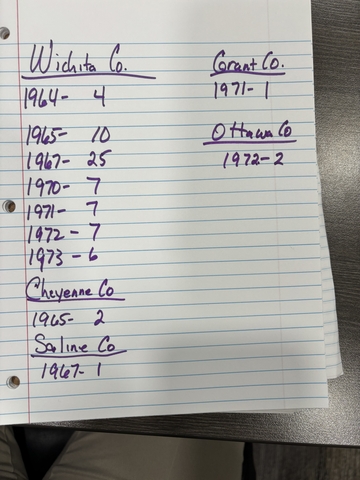 Wichita Co.
1964- 4
1965- 10
1967- 25
1970- 7
1971- 7
1972- 7
1973- 6
Cheyenne Co
1965- 2
Saline Co
1967- 1
Grant Co.
1971- 1
Ottawa Co
1972- 2